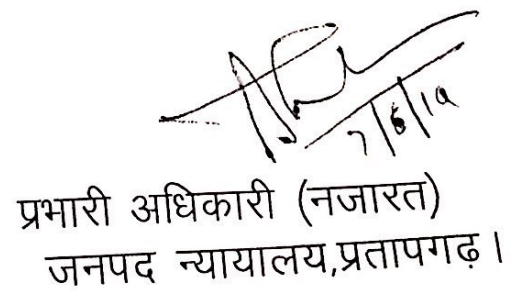 7/6/19
प्रभारी अधिकारी (नजारत)
जनपद न्यायालय,प्रतापगढ़।